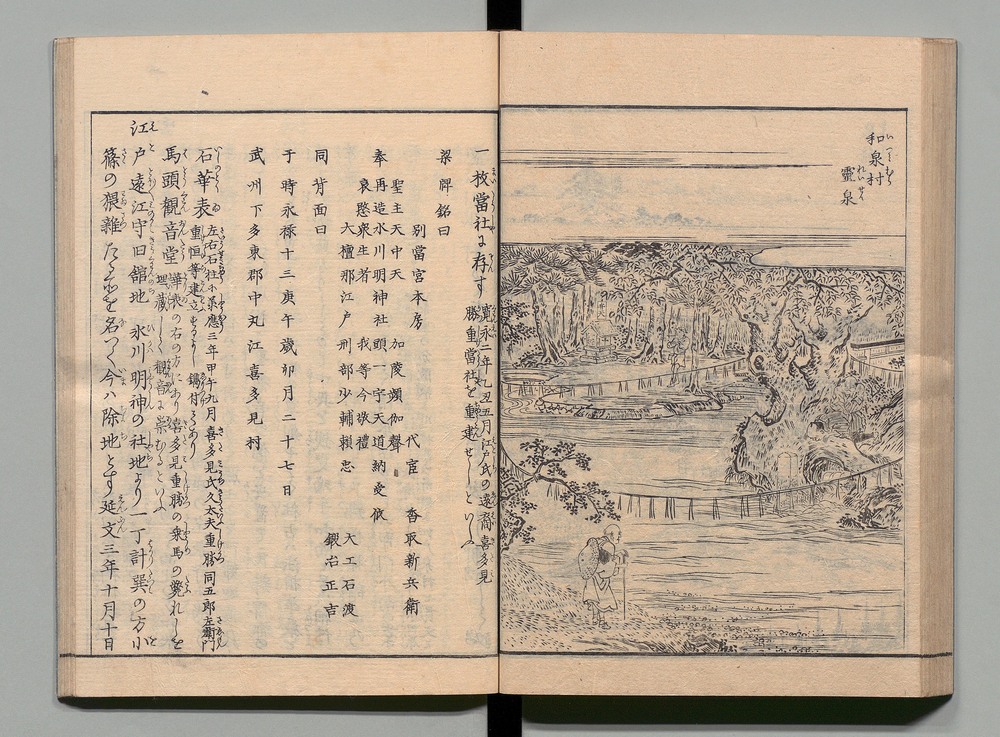 和泉村
霊泉
一枚當社に存す 寛永二年乙丑五月江戸氏の遠裔喜多見
勝重當社を重建せしといふ
梁牌銘曰
別當宮本房 代官 香取新兵衛
聖主天中天 加陵頻伽聲
奉再造氷川明神社頭一宇天道納受
哀愍衆生者 我等今敬禮
大檀那江戸刑部少輔頼忠 大工石渡
鍛冶正吉
同背面曰
于時永禄十三庚午歳卯月二十七日
武州下多東郡中丸江喜多見村
石華表 左右石柱に承應三年甲午九月喜多見氏久太夫重勝同五郎左衛門
重恒等建立
馬頭観音堂 華表の右の方にあり喜多見重勝の乗馬の斃れしを
埋蔵し観音に崇むるといふ
江戸遠江守旧舘地 氷川明神の社地より一丁計巽の方小
篠の猥雑たる所を名つく今ハ除地とす延文三年十月十日